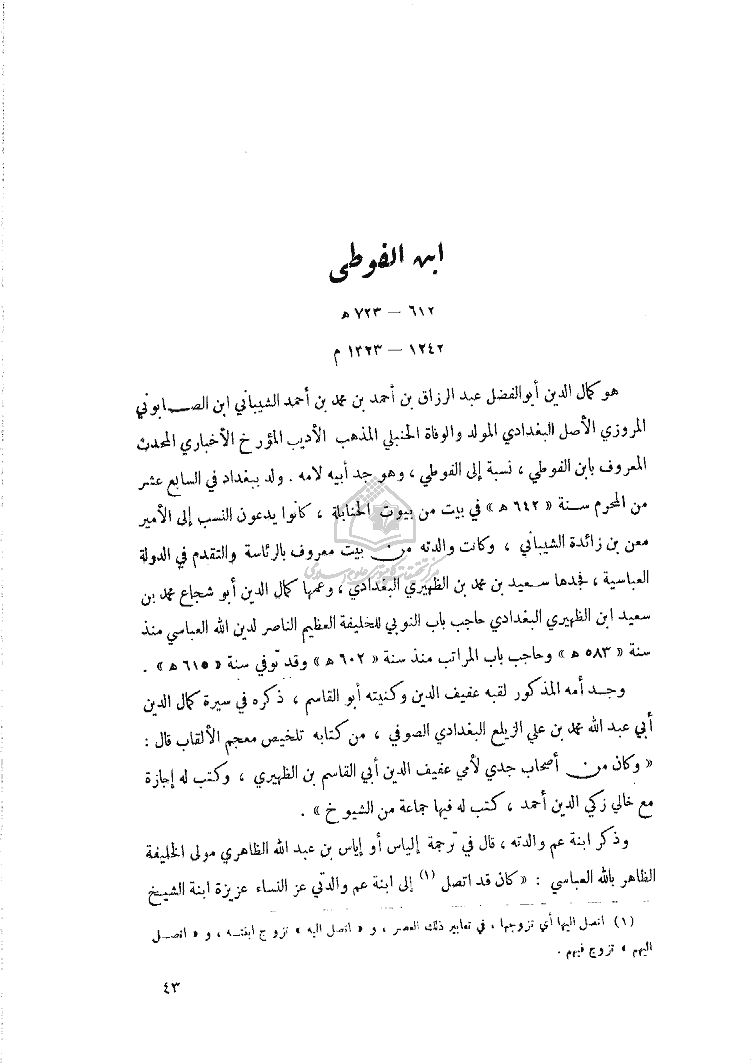 ابن الفوطي
٦١٢ — ٧٢٣ ه
١٢٤٢ — ١٣٢٣ م
هو كمال الدين أبو الفضل عبد الرزاق بن أحمد بن محمد بن أحمد الشيباني ابن الصـــابوني
المروزي الأصل البغدادي المولد والوفاة الحنبلي المذهب الأديب المؤرخ الأخباري المحدث
المعروف بابن الفوطي ، نسبة إلى الفوطي ، وهو جد أبيه لامه . ولد ببغداد في السابع عشر
من المحرم سـنة « ٦٤٢ ه » في بيت من بيوت الحنابلة ، كانوا يدعون النسب إلى الأمير
معن بن زائدة الشيباني ، وكانت والدته من بيت معروف بالرئاسة والتقدم في الدولة
العباسية ، فجدها سـعيد بن محمد بن الظهيري البغدادي ، وعمها كمال الدين أبو شجاع محمد بن
سعيد ابن الظهيري البغدادي حاجب باب النوبي للخليفة العظيم الناصر لدين الله العباسي منذ
سنة « ٥٨٣ ه » وحاجب باب المراتب منذ سنة « ٦٠٢ ه » وقد توفي سنة « ٦١٥ ه » .
وجـد أمه المذكور لقبه عفيف الدين وكنيته أبو القاسم ، ذكره في سيرة كمال الدين
أبي عبد الله محمد بن علي الزيلع البغدادي الصوفي ، من كتابه تلخيص معجم الألقاب قال :
« وكان من أصحاب جدي لأمي عفيف الدين أبي القاسم بن الظهيري ، وكتب له إجازة
مع خالي زكي الدين أحمد ، كتب له فيها جماعة من الشيوخ » .
وذكر ابنة عم والدته ، قال في ترجمة إلياس أو إياس بن عبد الله الظاهري مولى الخليفة
الظاهر بالله العباسي : « كان قد اتصل (١) إلى ابنة عم والدتي عز النساء عزيزة ابنة الشيـخ
(١) اتصل اليها أي تزوجها ، في تعابير ذلك العصر ، و « اتصل اليه » تزوج ابنتـه ، و « اتصـل
اليهم » تزوج فيهم .
٤٣